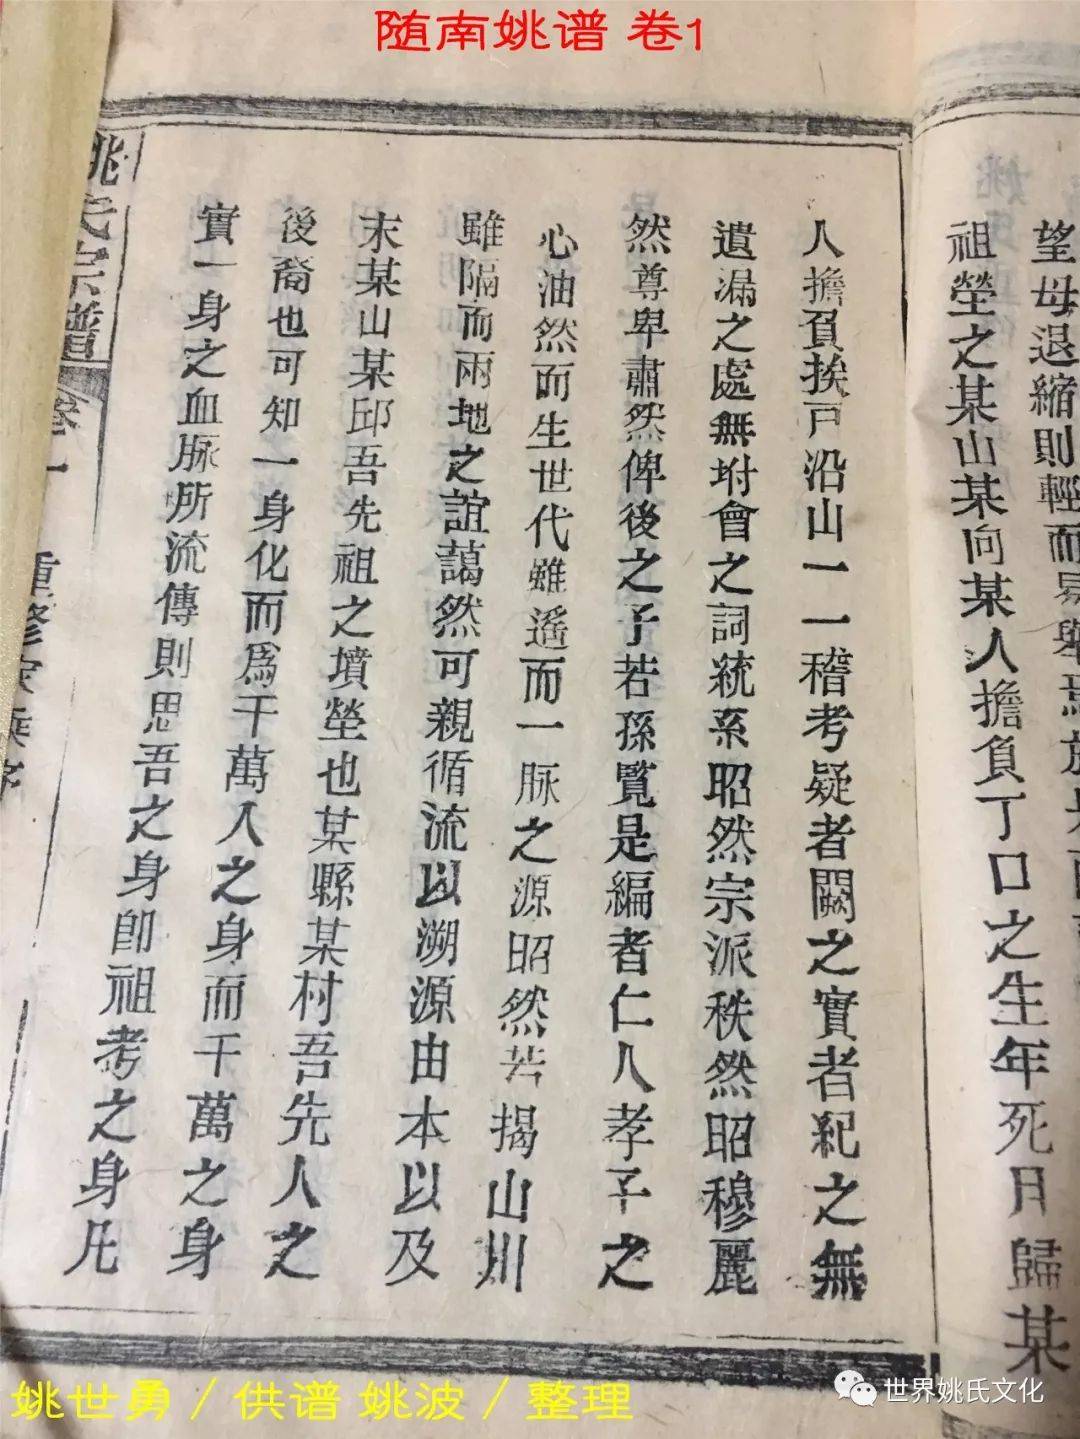 随南姚谱 卷1
望毋退縮則輕而易舉焉族
祖塋之某山某向某人擔負丁口之生年死月歸某
人擔負挨戸沿山一一稽考疑者闕之實者紀之無
遺漏之處無坿會之詞統系昭然宗派秩然昭穆麗
然尊卑肅然俾後之子若孫覧是編者仁人孝子之
心油然而生世代雖遥而一脉之源昭然若揭山川
雖隔而兩地之誼藹然可親循流以溯源由本以及
末某山某邱吾先祖之墳塋也某縣某村吾先人之
後裔也可知一身化而爲千萬人之身而千萬之身
實一身之血脉所流傳則思吾之身卽祖考之身凡
姚氏宗譜 卷一 重修家乘序
姚世勇／供谱 姚波／整理
世界姚氏文化